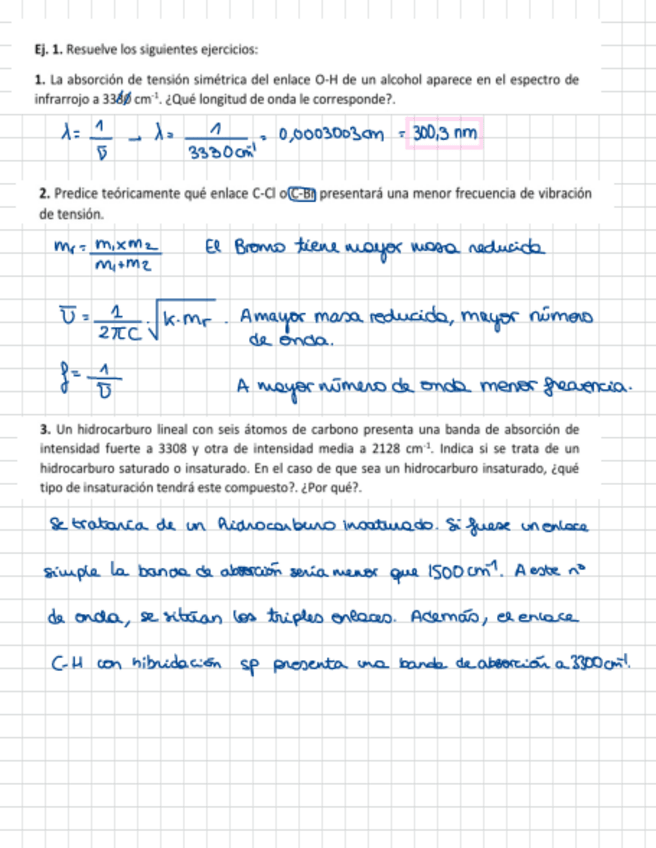 Ej. 1. Resuelve los siguientes ejercicios:
1. La absorción de tensión simétrica del enlace O-H de un alcohol aparece en el espectro de
infrarrojo a 3330 cm⁻¹. ¿Qué longitud de onda le corresponde?.
λ = 1/ῡ → λ = 1/3330 cm⁻¹ = 0,0003003 cm = 300,3 nm
2. Predice teóricamente qué enlace C-Cl o C-Br presentará una menor frecuencia de vibración
de tensión.
mr = m₁xm₂/m₁+m₂ El Bromo tiene mayor masa reducida
ῡ = 1/2πC · √k·mr . A mayor masa reducida, mayor número
de onda.
f = 1/ῡ A mayor número de onda menor frecuencia.
3. Un hidrocarburo lineal con seis átomos de carbono presenta una banda de absorción de
intensidad fuerte a 3308 y otra de intensidad media a 2128 cm⁻¹. Indica si se trata de un
hidrocarburo saturado o insaturado. En el caso de que sea un hidrocarburo insaturado, ¿qué
tipo de insaturación tendrá este compuesto?. ¿Por qué?.
Se trataría de un hidrocarburo insaturado. Si fuese un enlace
simple la banda de absorción sería menor que 1500 cm⁻¹. A este nº
de onda, se sitúan los triples enlaces. Además, el enlace
C-H con hibridación sp presenta una banda de absorción a 3300 cm⁻¹.